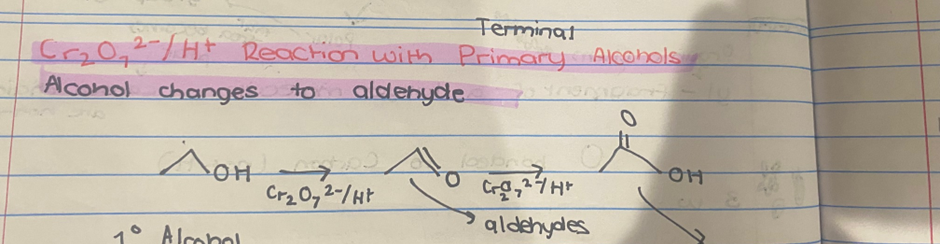 Terminal
Cr₂O₇²⁻/H⁺ Reaction with Primary Alcohols
Alcohol changes to aldehyde
O
OH O OH
Cr₂O₇²⁻/H⁺ Cr₂O₇²⁻/H⁺
aldehydes
1° Alcohol